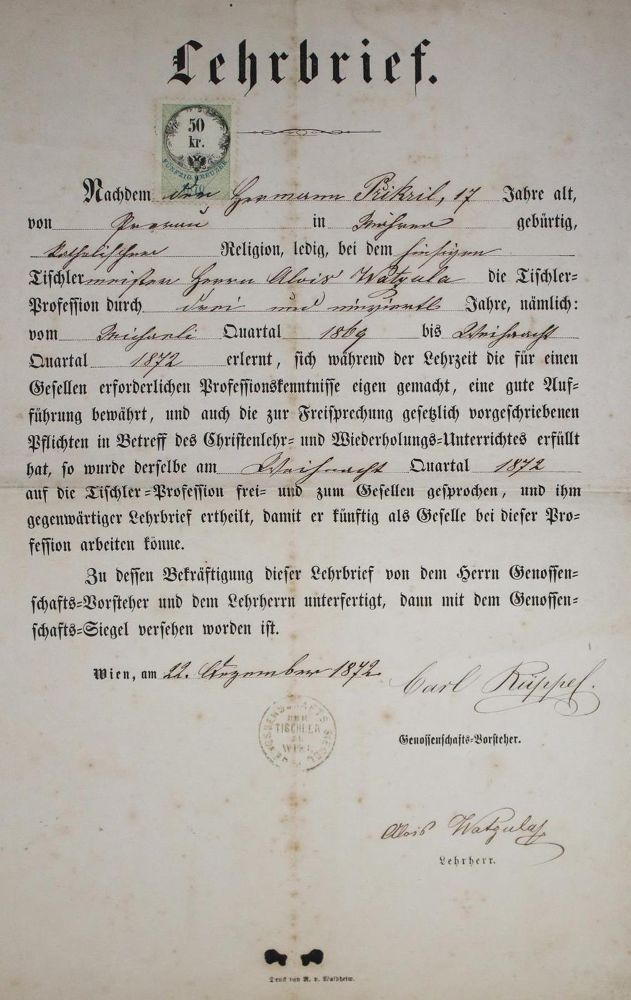 Lehrbrief.
50
kr.
FÜNFZIG KREUZER
Nachdem der Hermann Přikril, 17 Jahre alt,
von Prerau in Mähren gebürtig,
katholischer Religion, ledig, bei dem hiesigen
Tischlermeister Herrn Alois Watzula die Tischler-
Profession durch drei und einviertl Jahre, nämlich:
vom Michaeli Quartal 1869 bis Weihnacht
Quartal 1872 erlernt, sich während der Lehrzeit die für einen
Gesellen erforderlichen Professionskenntnisse eigen gemacht, eine gute Auf-
führung bewährt, und auch die zur Freisprechung gesetzlich vorgeschriebenen
Pflichten in Betreff des Christenlehr- und Wiederholungs-Unterrichtes erfüllt
hat, so wurde derselbe am Weihnacht Quartal 1872
auf die Tischler-Profession frei- und zum Gesellen gesprochen, und ihm
gegenwärtiger Lehrbrief ertheilt, damit er künftig als Geselle bei dieser Pro-
fession arbeiten könne.
Zu dessen Bekräftigung dieser Lehrbrief von dem Herrn Genossen-
schafts-Vorsteher und dem Lehrherrn unterfertigt, dann mit dem Genossen-
schafts-Siegel versehen worden ist.
Wien, am 22. Dezember 1872
Carl Rüppel.
GENOSSENSCHAFTS SIEGEL
DER
TISCHLER
IN
WIEN
Genossenschafts-Vorsteher.
Alois Watzula
Lehrherr.
Druck von R. v. Waldheim.